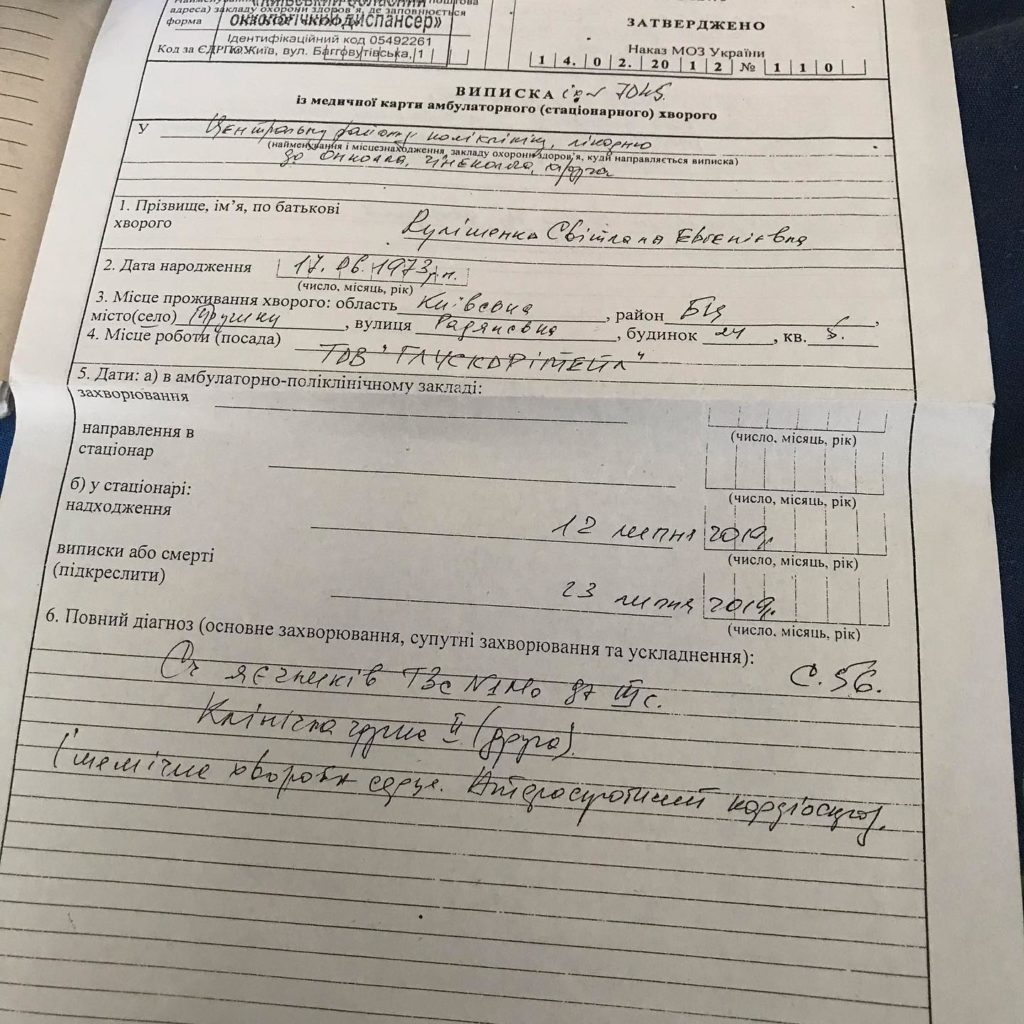 адреса) закладу охорони здоров'я, де заповнюється
форма
онкологічний диспансер»
Ідентифікаційний код 05492261
Код за ЄДРПОУ
м. Київ, вул. Багговутівська, 1
ЗАТВЕРДЖЕНО
Наказ МОЗ України
14.02.2012 № 110
ВИПИСКА 7045
із медичної карти амбулаторного (стаціонарного) хворого
У Центральну районну поліклініку, лікарню
(найменування і місцезнаходження закладу охорони здоров'я, куди направляється виписка)
до онколога, гінеколога, хірурга
1. Прізвище, ім'я, по батькові
хворого
Кулішенко Світлана Євгенівна
2. Дата народження 17.06.1973р.н.
(число, місяць, рік)
3. Місце проживання хворого: область Київська, район БЦ,
місто(село) Трушки, вулиця Радянська, будинок 24, кв. 5.
4. Місце роботи (посада)
ТОВ
5. Дати: а) в амбулаторно-поліклінічному закладі:
захворювання
(число, місяць, рік)
направлення в
стаціонар
(число, місяць, рік)
б) у стаціонарі:
надходження
12 липня 2019р.
(число, місяць, рік)
виписки або смерті
(підкреслити)
23 липня 2019р.
(число, місяць, рік)
6. Повний діагноз (основне захворювання, супутні захворювання та ускладнення):
С.56.
Cr яєчників T3c N1M0 ст IIIс.
Клінічна група II (друга).
Ішемічна хвороба серця. Атеросклеротичний кардіосклероз.